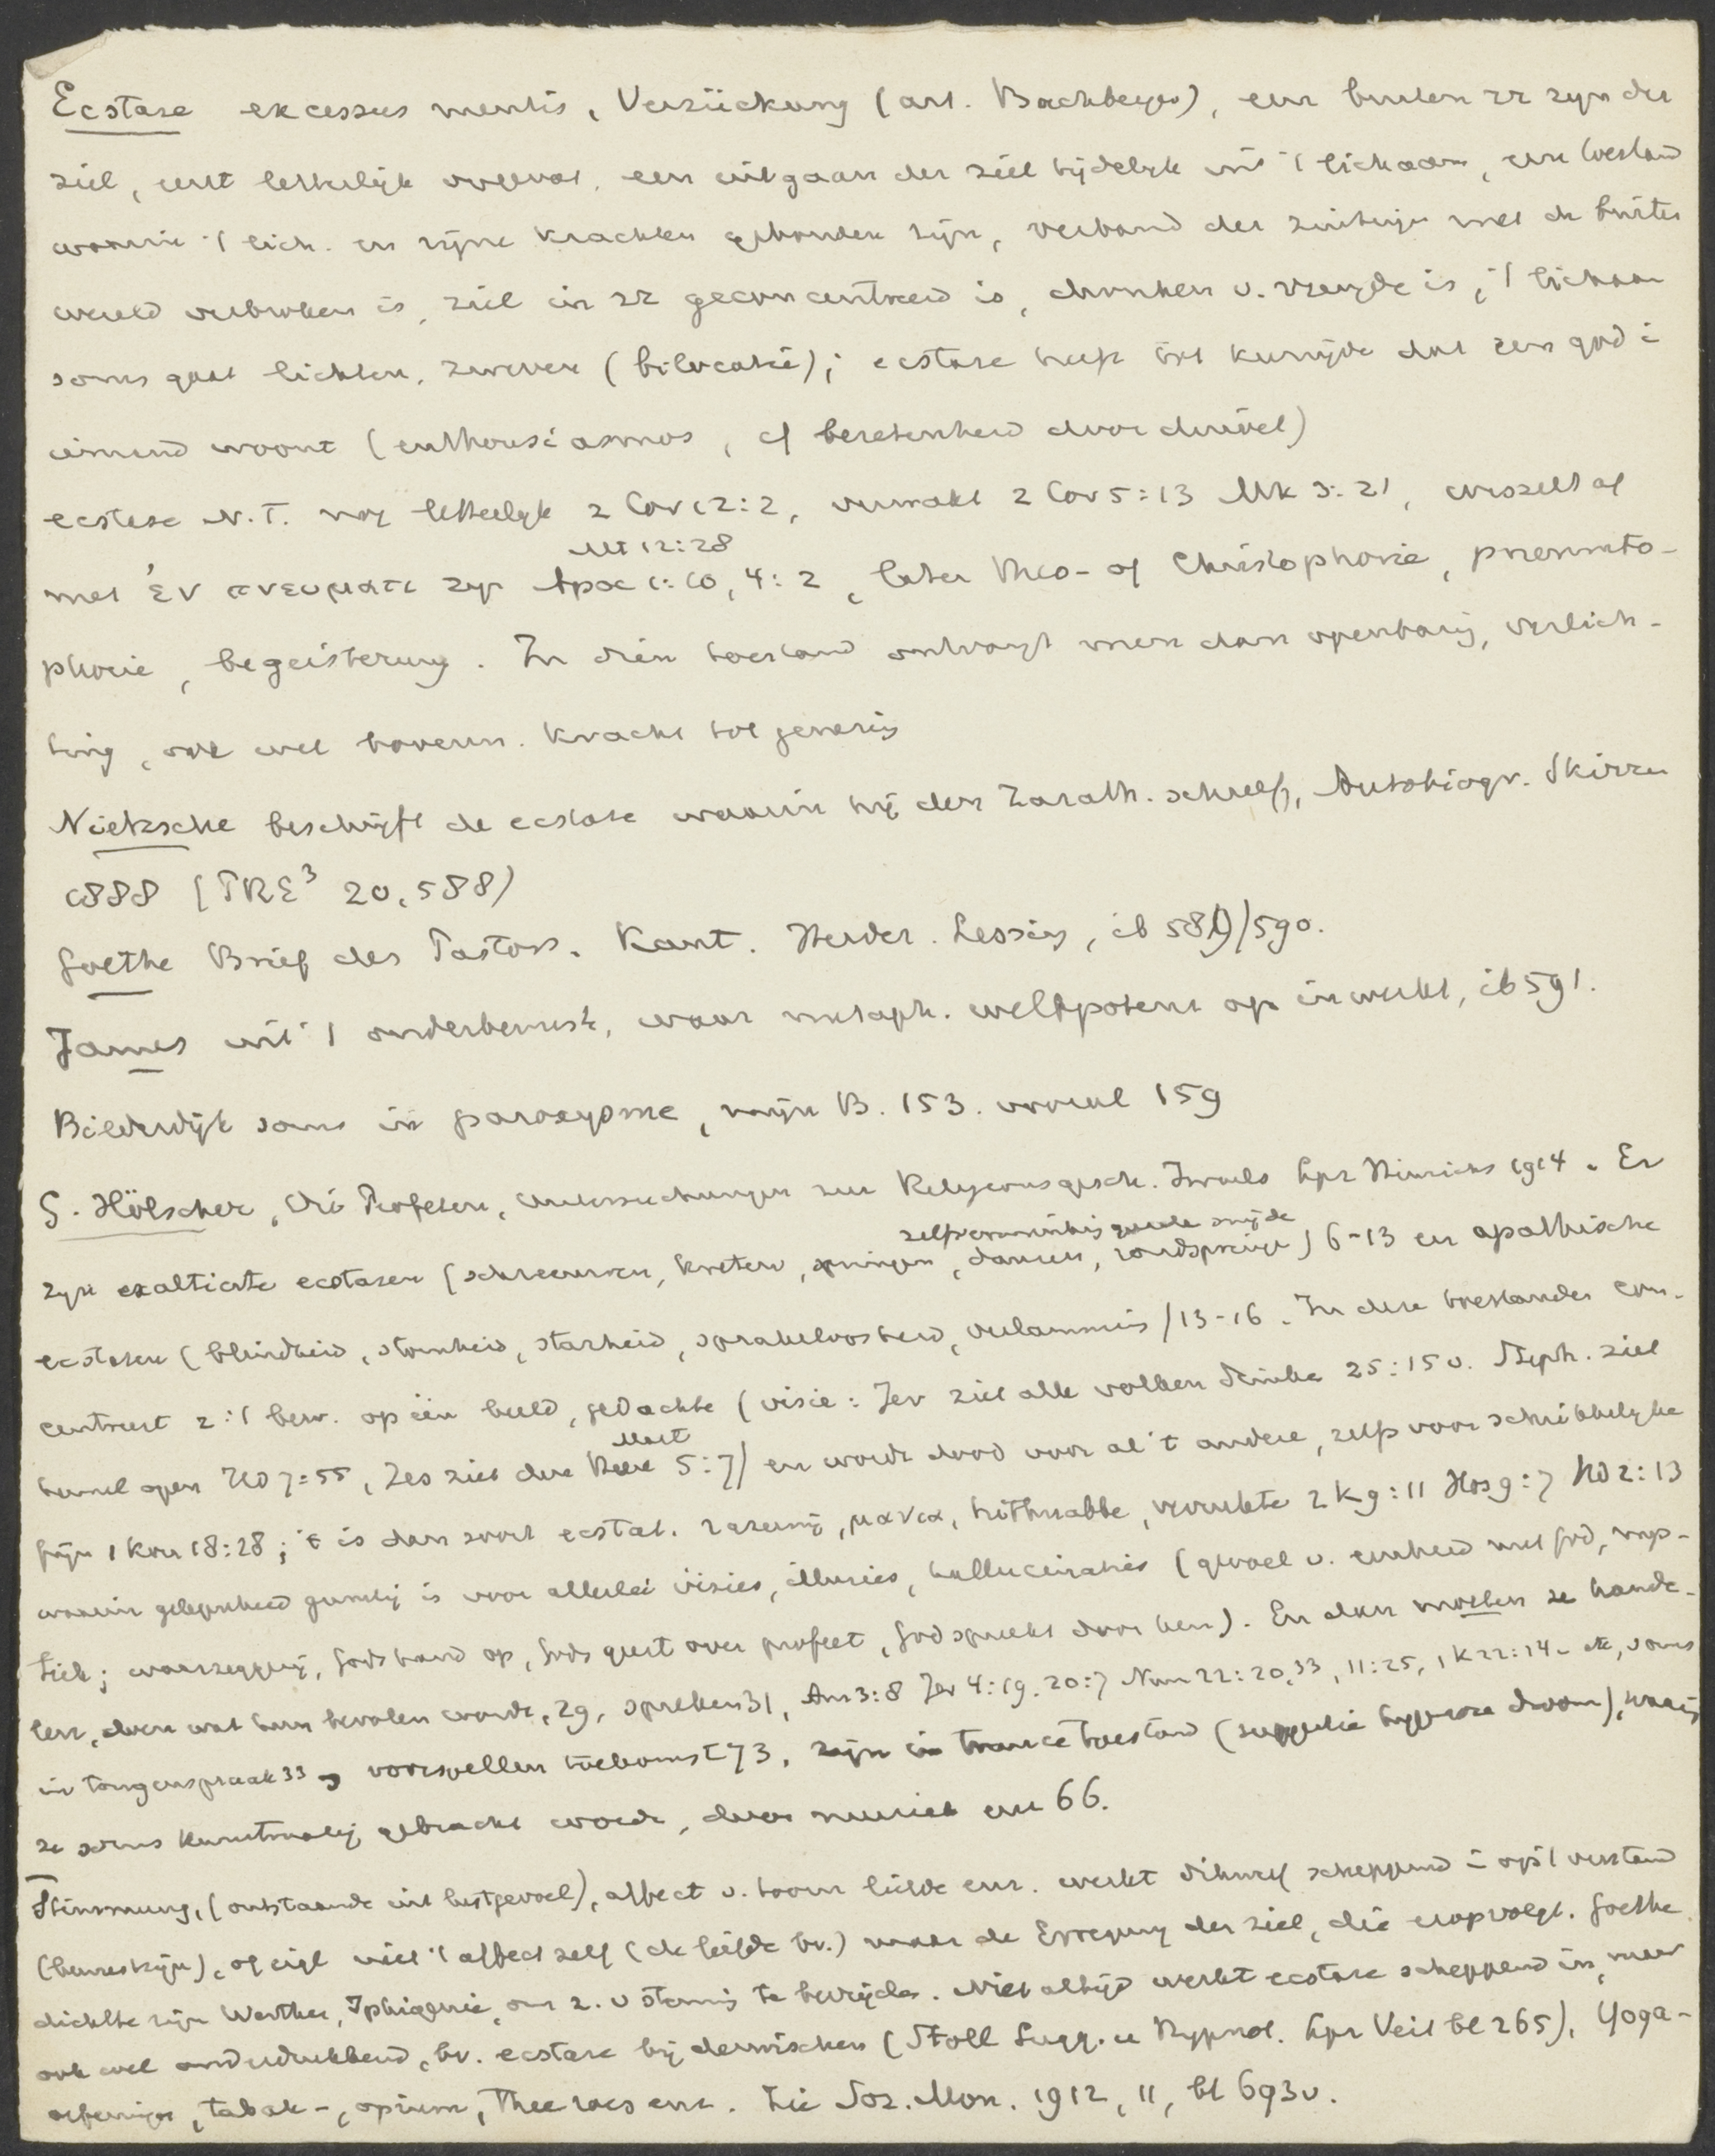 Ecstase excessus mentis, Verzückung (art. Bachberges), een buiten zz zyn der
ziel, eerst letterlijk opgevat, een uitgaan der ziel tijdelyk uit 't lichaam, een toestand
waarin 't lich. en zijne krachten gebonden zijn, verband der zintuigen met de buiten
wereld verbroken is, ziel in zz geconcentreerd is, dronken v. vreugde is, 't lichaam
soms gaat lichten, zweven (bilocatie); ecstase heeft het kenmerk dat een god i
iemand woont (enthousiasmos, cf bezetenheid door duivel)
ecstase N.T. nog letterlyk 2 Cor 12:2, verzwakt 2 Cor 5:13 Mk 3:21, wisselt af
Mt 12:28
met ἐν πνευματι zyn Apoc 1:10, 4:2, later Theo- of Christophorie, pneumato-
phorie, begeisterung. In dien toestand ontvangt men dan openbaring, verlich-
ting, ook wel bovenn. kracht tot genezing
Nietzsche beschrijft de ecstase waarin hij den Zarath. schreef, Autobiogr. Skizze
1888 (PRE³ 20,588)
Goethe Brief des Pastors. Kant. Herder. Lessing, ib 589/590.
James uit 't onderbewuste, waar metaph. weltpotenz op inwerkt, ib 591.
Bilderdijk soms in paroxysme, mijn B. 153. vooral 159
G. Hölscher, Die Profeten, Untersuchungen zur Religionsgesch. Israels Lpz Hinrichs 1914. Er
zelfverminking
zyn exaltierte ecstasen (schreeuwen, kreten, springen, dansen, rondspringen) 6-13 en apathische
ecstasen (blindheid, stomheid, starheid, sprakeloosheid, verlamming) 13-16. In deze toestanden con-
centreert z. 't bew. op één beeld, gedachte (visie: Jer ziet alle volken drinken 25:15v. Steph. ziet
hemel open Hd 7:55, 5:7) en wordt dood voor al 't andere, zelfs voor schrikkelyke
pijn 1 Kon 18:28; 't is dan soort ecstat. razernij, μανια, hithnabbe, verrukte 2 K 9:11 Hos 9:7 Hd 2:13
waarin gelegenheid gunstig is voor allerlei visies, illusies, hallucinaties (gevoel v. eenheid met God, mys-
tiek; waarzegging, Gods hand op, Gods geest over profeet, God spreekt door hem). En dan moeten ze hande-
len, doen wat hun bevolen wordt, 29, spreken 31, Am 3:8 Jer 4:19. 20:7 Num 22:20,33, 11:25, 1 K 22:14 etc, soms
in tongenspraak 33, voorspellen toekomst 73, zijn in trance toestand (suggestie hypnose droom), waarin
ze soms kunstmatig gebracht worden, door muziek enz 66.
Stimmung, (ontstaande uit lustgevoel), affect v. toorn liefde enz. werkt dikwijls scheppend in op 't verstand
(bewustzijn), of eigl niet 't affect zelf (de liefde bv.) maar de Erregung der ziel, die eropvolgt. Goethe
dichtte zijn Werther, Iphigenie, om z. v stemming te bevrijden. Niet altijd werkt ecstase scheppend in, maar
ook wel onderdrukkend, bv. ecstase bij derwischen (Stoll Sugg. u Hypnot. Lpz Veit bl 265), Yoga-
oefeningen, tabak-, opium, thee roes enz. Zie Soz. Mon. 1912, 11, bl 693v.